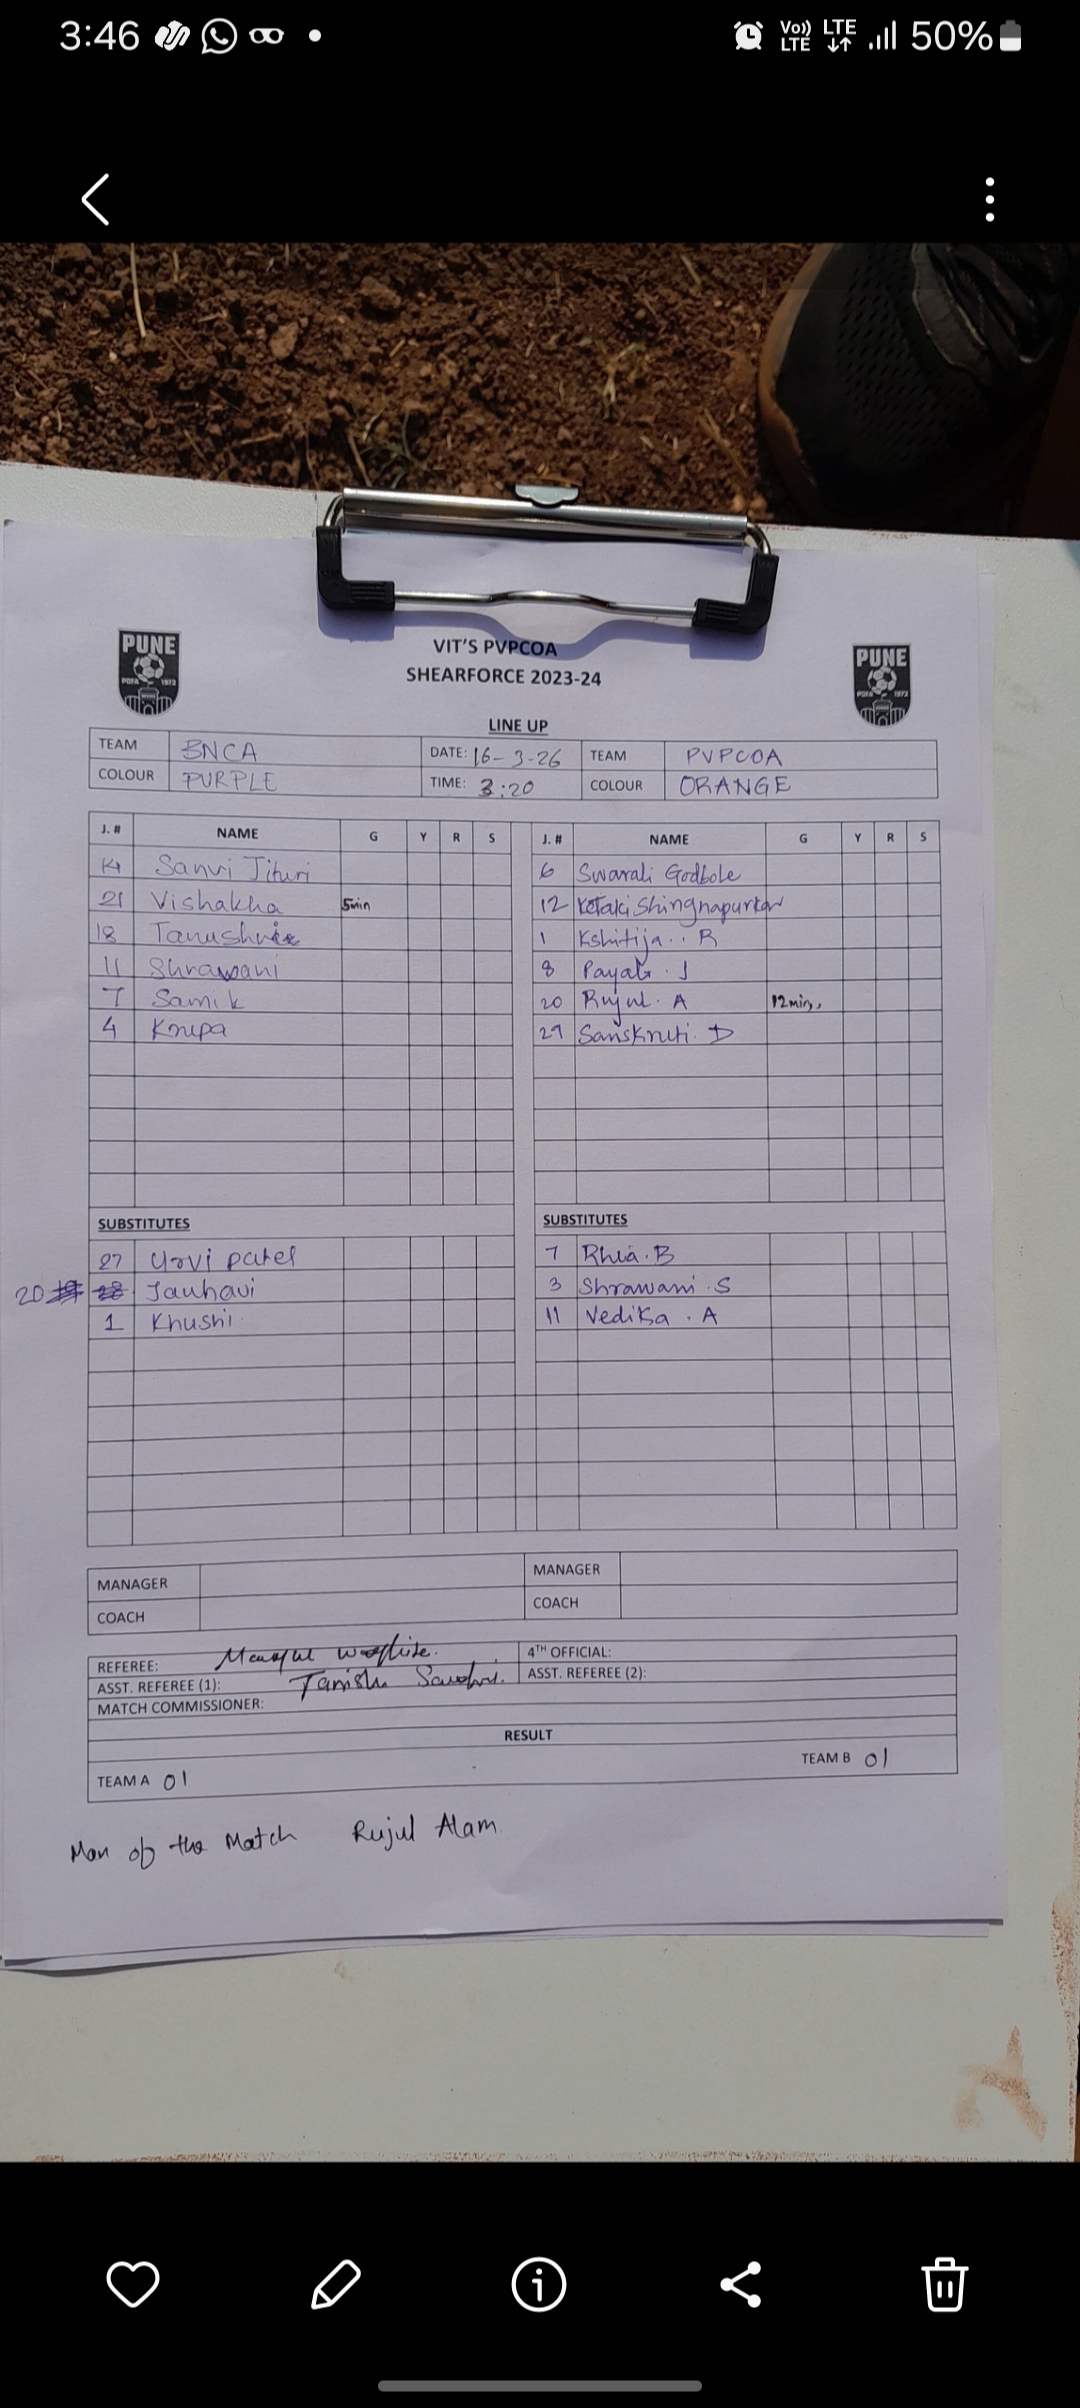 3:46
Vo)) LTE LTE 50%
PUNE
PDFA 1972
VIT'S PVPCOA
SHEARFORCE 2023-24
PUNE
PDFA 1972
LINE UP
TEAM BNCA DATE: 16-3-26 TEAM PVPCOA
COLOUR PURPLE TIME: 3:20 COLOUR ORANGE
J. # NAME G Y R S J. # NAME G Y R S
14 Sanvi Jituri 6 Swarali Godbole
21 Vishakha 5min 12 Ketaki Shingnapurkar
18 Tanushree 1 Kshitija . . R
11 Shrawani 8 Payal . J
7 Samik 20 Rujul . A 12min,
4 Krupa 29 Sanskruti . D
SUBSTITUTES SUBSTITUTES
27 Urvi patel 7 Rhia . B
20 Janhavi 3 Shrawani . S
1 Khushi 11 Vedika . A
MANAGER MANAGER
COACH COACH
REFEREE: 4TH OFFICIAL:
ASST. REFEREE (1): Tanish ASST. REFEREE (2):
MATCH COMMISSIONER:
RESULT
TEAM A 01 TEAM B 01
Man of the Match Rujul Alam.